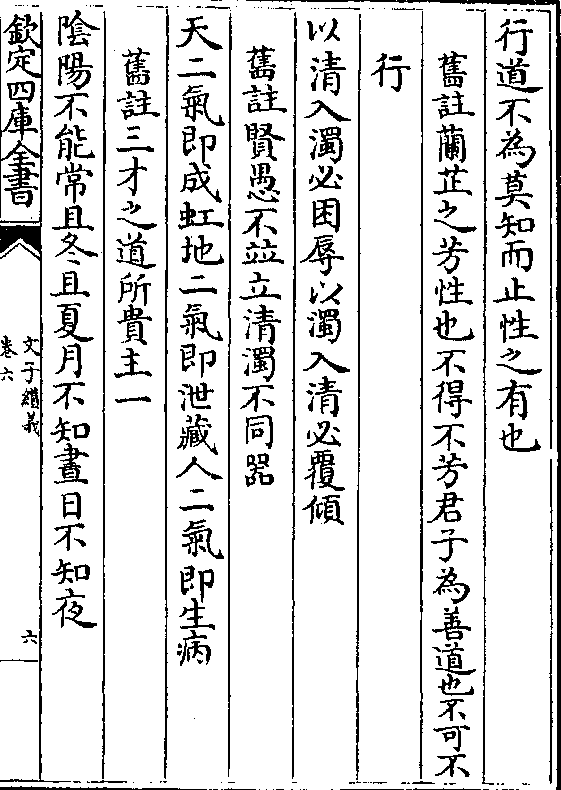 行道不為莫知而止性之有也
舊註蘭芷之芳性也不得不芳君子為善道也不可不
行
以清入濁必困辱以濁入清必覆傾
舊註賢愚不竝立清濁不同器
天二氣即成虹地二氣即泄藏人二氣即生病
舊註三才之道所貴主一
陰陽不能常且冬且夏月不知晝日不知夜
欽定四庫全書
文子纘義
卷六
六